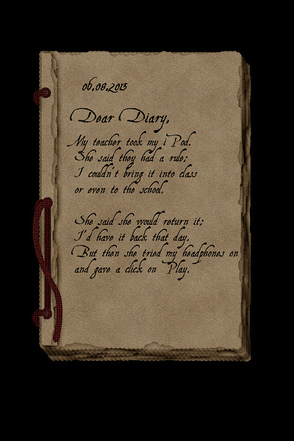 06.08.2013
Dear Diary,
My teacher took my i Pod.
She said they had a rule;
I couldn't bring it into class
or even to the school.
She said she would return it;
I'd have it back that day.
But then she tried my headphones on
and gave a click on Play.